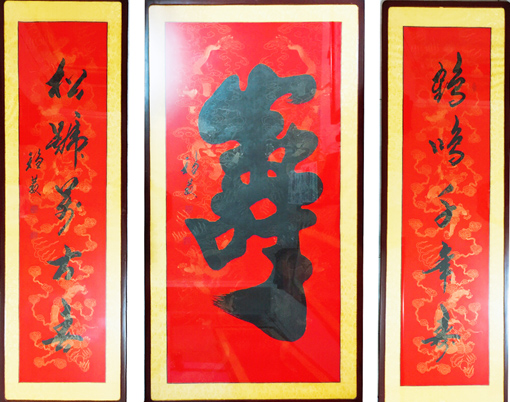 鶴鳴千年寿
寿
松齡萬古春